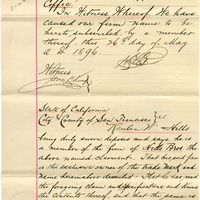 Office.
In Witness Whereof, We have
caused our firm name to be
hereto subscribed, by a member
thereof, this 26th day of May
A.D. 1896.
Witness
State of California
City County of San Francisco ss
Hills
being duly sworn deposes and says, he is
a member of the firm of Hills Bros the
above named claimant. That his said firm
is the exclusive owner of the trade mark and
name hereinabove described. That he has read
the foregoing claim and specification and knows
the contents thereof, and that the same is